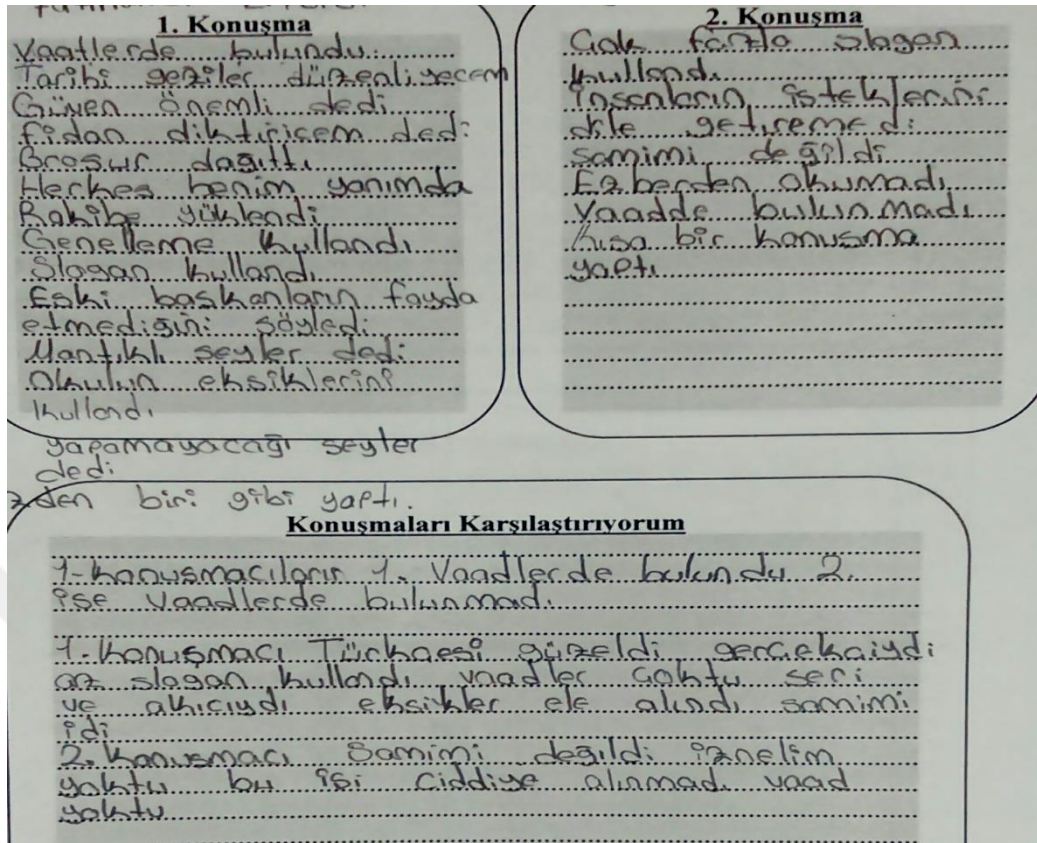 1. Konuşma
Vaatlerde bulundu.
Tarihi geziler düzenliyecem
Güven önemli dedi
fidan diktiricem dedi
Broşur dağıttı
Herkes benim yanımda
Rakibe yüklendi
Genelleme kullandı
Slogan kullandı
Eski başkanların fayda
etmediğini söyledi
Mantıklı seyler dedi
Okulun eksiklerini
kullandı
yapamayacağı seyler
dedi
zden biri gibi yaptı.
2. Konuşma
Çok fazla slogan
kullandı
insanların isteklerini
dile getiremedi
samimi değildi
Ezberden okumadı
Vaadde bulunmadı
kısa bir konuşma
yaptı
Konuşmaları Karşılaştırıyorum
1-konusmacıların 1. Vaadlerde bulundu 2.
ise Vaadlerde bulunmadı
1. konuşmacı Türkçesi güzeldi gerçekçiydi
az slogan kullandı vaadler çoktu seri
ve akıcıydı eksikler ele alındı samimi
idi
2. konusmacı Samimi değildi
yoktu bu işi ciddiye alınmadı vaad
yoktu